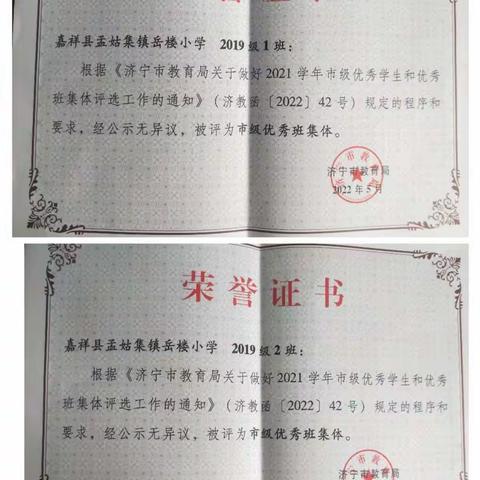 嘉祥县孟姑集镇岳楼小学 2019级1班：
根据《济宁市教育局关于做好2021学年市级优秀学生和优秀
班集体评选工作的通知》（济教函〔2022〕42号）规定的程序和
要求，经公示无异议，被评为市级优秀班集体。
济宁市教育局
2022年5月
荣誉证书
嘉祥县孟姑集镇岳楼小学 2019级2班：
根据《济宁市教育局关于做好2021学年市级优秀学生和优秀
班集体评选工作的通知》（济教函〔2022〕42号）规定的程序和
要求，经公示无异议，被评为市级优秀班集体。
济宁市教育局